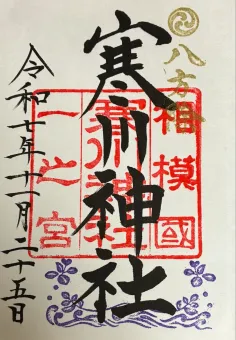 八方除
相模國
寒川神社
寒川神社
一之宮
令和七年十一月二十五日